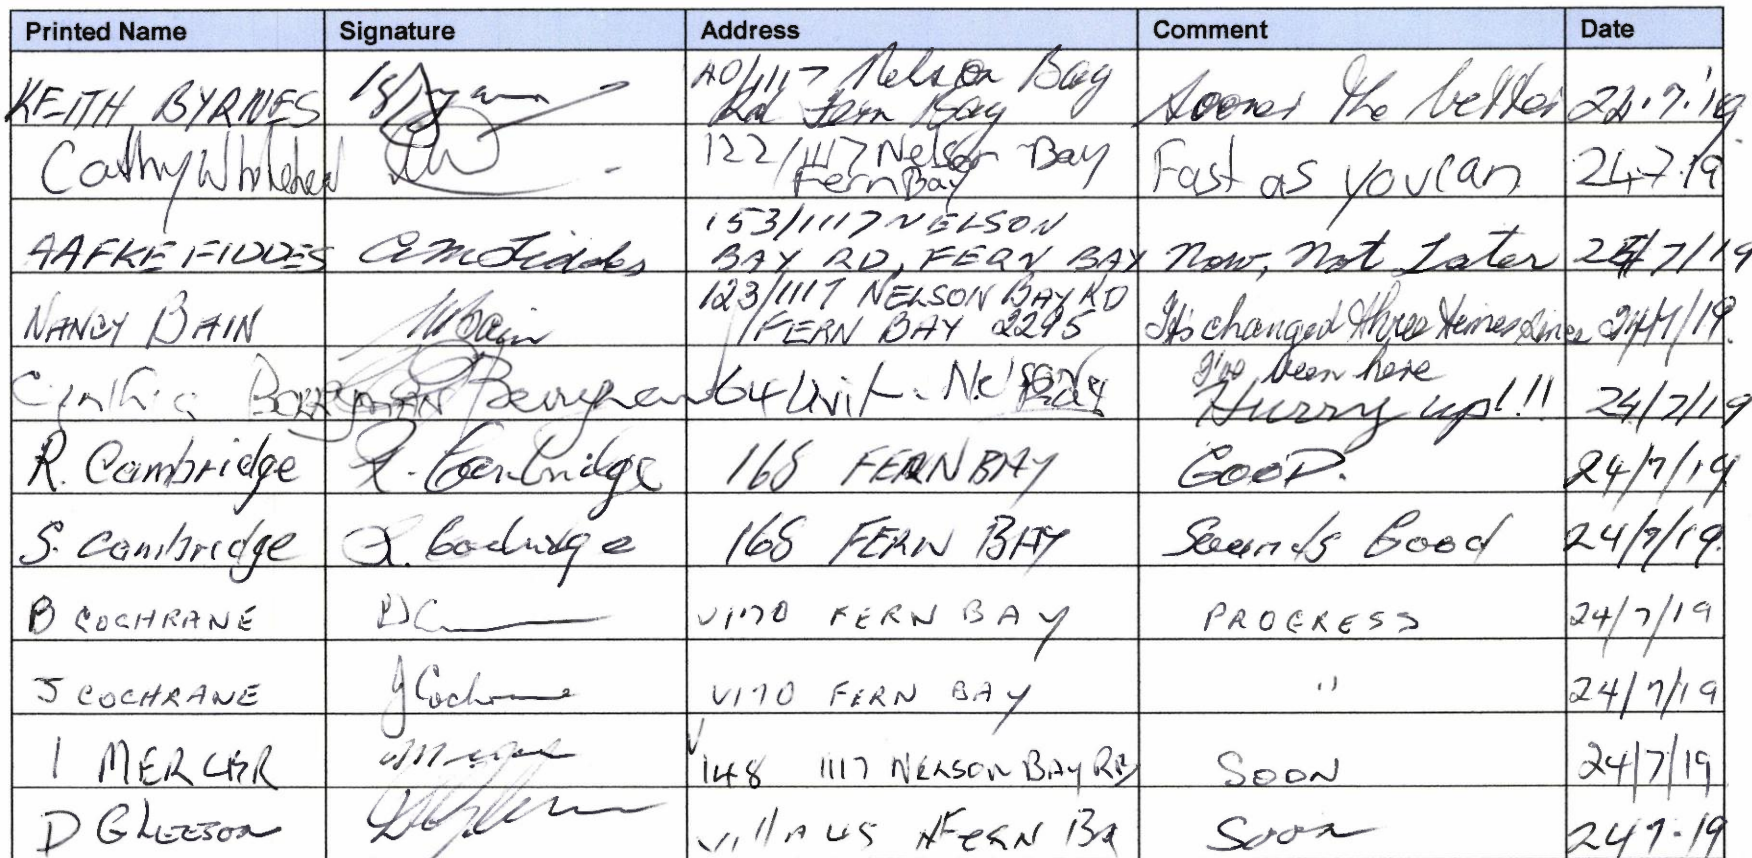 Printed Name Signature Address Comment Date
KEITH BYRNES A0/1117 Nelson Bay
Rd Fern Bay Sooner the better 24.7.'19
Cathy Whitehead 122/1117 Nelson Bay
Fern Bay Fast as you can 24.7.19
AAFKE FIDDES AmFiddes 153/1117 NELSON
BAY RD, FERN BAY Now, Not Later 24/7/19
NANCY BAIN NBain 123/1117 NELSON BAY RD
FERN BAY 2295 It's changed three times since 24/7/19
I've been here
Cynthia BERRYMAN Berryman 64 Unit. Nelson
Bay Hurry up!!! 24/7/19
R. Cambridge R. Cambridge 168 FERN BAY GOOD. 24/7/19
S. Cambridge 168 FERN BAY Sounds Good 24/7/19
B COCHRANE V170 FERN BAY PROGRESS 24/7/19
J COCHRANE J Cochrane V170 FERN BAY " 24/7/19
I MERCER V148 1117 NELSON BAY RD SOON 24/7/19
D GLEESON FERN BA Soon 24 7-19